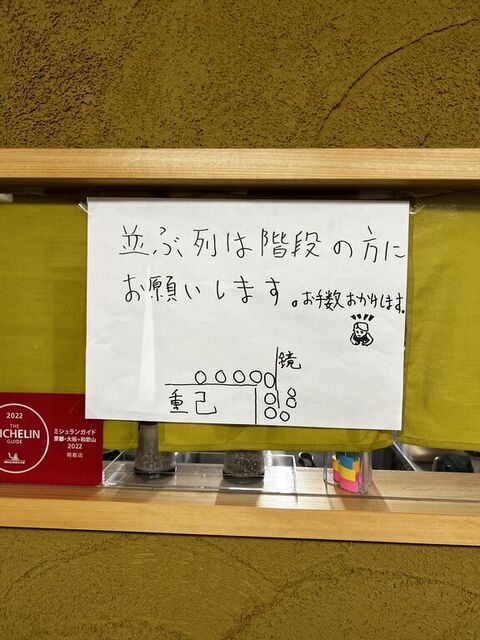 並ぶ列は階段の方に
お願いします。お手数おかけします。
鏡
重己
2022
THE
MICHELIN
GUIDE
MICHELIN
ミシュランガイド
京都・大阪+和歌山
2022
掲載店